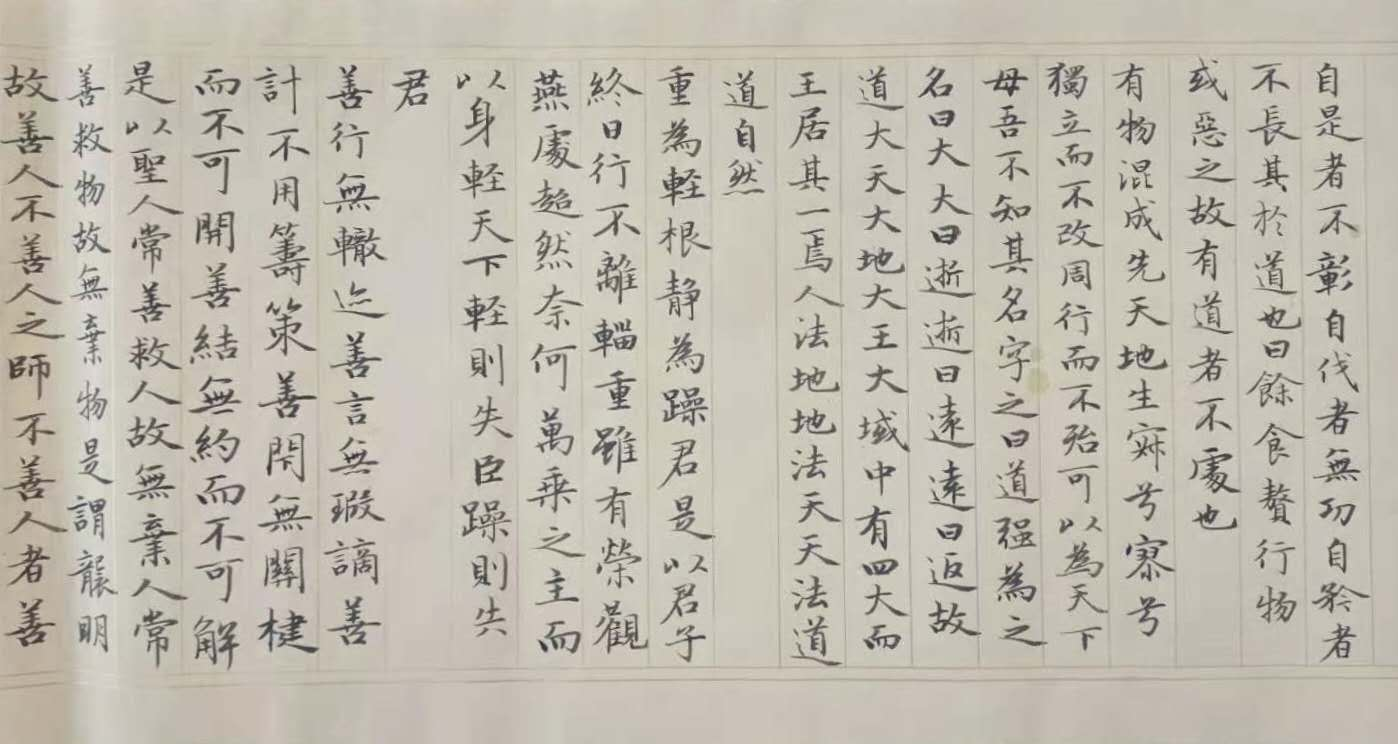 自是者不彰自伐者無功自矜者
不長其於道也曰餘食贅行物
或惡之故有道者不處也
有物混成先天地生寂兮寥兮
獨立而不改周行而不殆可以為天下
母吾不知其名字之曰道强為之
名曰大大曰逝逝曰遠遠曰返故
道大天大地大王大域中有四大而
王居其一焉人法地地法天天法道
道自然
重為軽根静為躁君是以君子
終日行不離輜重雖有榮觀
燕處超然奈何萬乘之主而
以身軽天下軽則失臣躁則失
君
善行無轍迹善言無瑕謫善
計不用籌策善閇無關楗
而不可開善結無約而不可解
是以聖人常善救人故無棄人常
善救物故無棄物是謂襲明
故善人不善人之師不善人者善